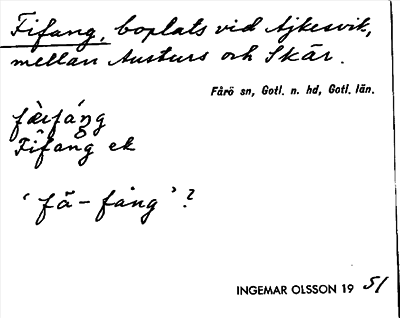 Fifang, boplats vid Ajkesvik,
mellan Austurs och Skär.
Fårö sn, Gotl. n. hd, Gotl. län.
fàifáŋg
Fifang ek
'fä-fång'?
INGEMAR OLSSON 19 51